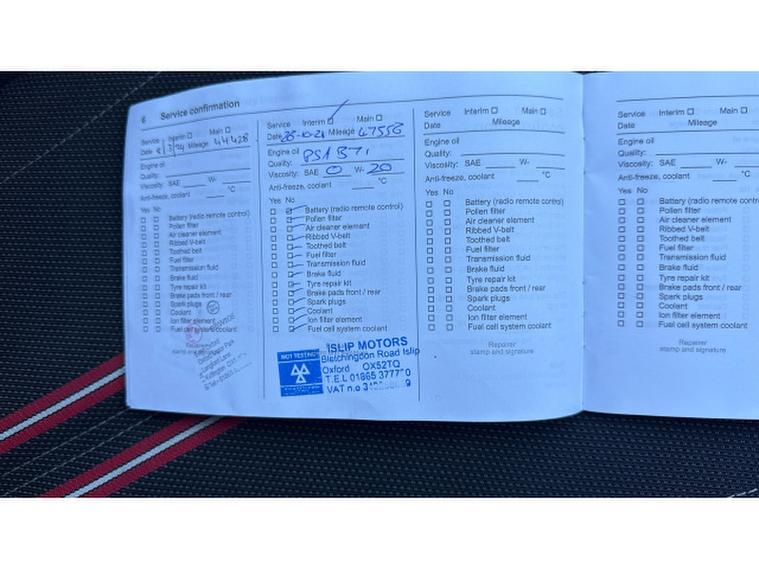 6 Service confirmation
Service Interim ☐ Main ☐
Date Mileage 44428
Engine oil
Quality:
Viscosity: SAE W-
Anti-freeze, coolant °C
Yes No
Battery (radio remote control)
Pollen filter
Air cleaner element
Ribbed V-belt
Toothed belt
Fuel filter
Transmission fluid
Brake fluid
Tyre repair kit
Brake pads front / rear
Spark plugs
Coolant
Ion filter element
Fuel cell system coolant
Service Interim ☐ Main ☐
Mileage 47556
Engine oil
Quality: PSA B71
Viscosity: SAE 0 W- 20
Anti-freeze, coolant °C
Yes No
Battery (radio remote control)
Pollen filter
Air cleaner element
Ribbed V-belt
Toothed belt
Fuel filter
Transmission fluid
Brake fluid
Tyre repair kit
Brake pads front / rear
Spark plugs
Coolant
Ion filter element
Fuel cell system coolant
MOT TESTING
ISLIP MOTORS
Bletchingdon Road Islip
Oxford OX52TQ
T.E.L 01865
VAT n.o
Service Interim ☐ Main ☐
Date Mileage
Engine oil
Quality:
Viscosity: SAE W-
Anti-freeze, coolant °C
Yes No
Battery (radio remote control)
Pollen filter
Air cleaner element
Ribbed V-belt
Toothed belt
Fuel filter
Transmission fluid
Brake fluid
Tyre repair kit
Brake pads front / rear
Spark plugs
Coolant
Ion filter element
Fuel cell system coolant
Repairer
stamp and signature
Service Interim ☐ Main ☐
Date Mileage
Engine oil
Quality:
Viscosity: SAE W-
Anti-freeze, coolant
Yes No
Battery (radio remote
Pollen filter
Air cleaner element
Ribbed V-belt
Toothed belt
Fuel filter
Transmission fluid
Brake fluid
Tyre repair kit
Brake pads front / rear
Spark plugs
Coolant
Ion filter element
Fuel cell system coolant
Repairer
stamp and signature